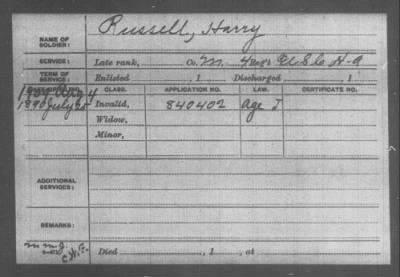 NAME OF SOLDIER: Russell, Harry
SERVICE: Late rank, Co. M. 4 Reg't
TERM OF SERVICE: Enlisted , 1 Discharged , 1
CLASS. APPLICATION NO. LAW. CERTIFICATE NO.
1890 July Invalid, 840402 Age
Widow,
Minor,
ADDITIONAL SERVICES:
REMARKS:
Died , 1 , at